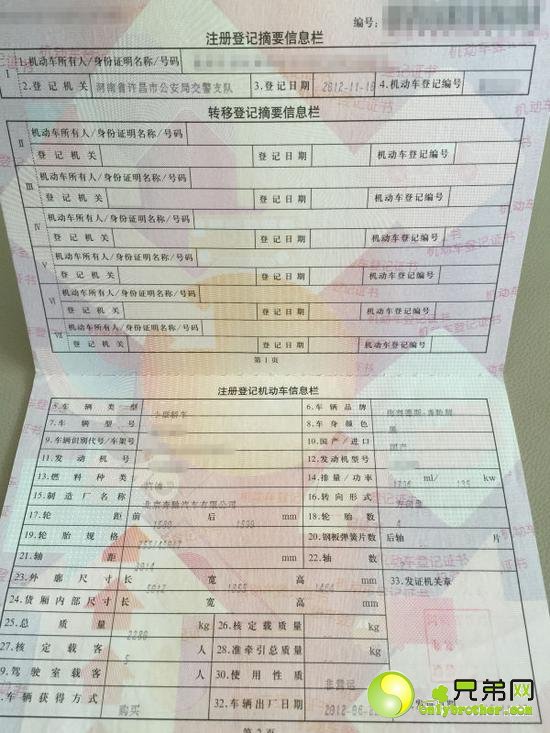 编号:
注册登记摘要信息栏
Ⅰ 1.机动车所有人/身份证明名称/号码
2.登记机关 河南省许昌市公安局交警支队 3.登记日期 2012-11-1 4.机动车登记编号
转移登记摘要信息栏
Ⅱ 机动车所有人/身份证明名称/号码
登记机关 登记日期 机动车登记编号
Ⅲ 机动车所有人/身份证明名称/号码
登记机关 登记日期 机动车登记编号
Ⅳ 机动车所有人/身份证明名称/号码
登记机关 登记日期 机动车登记编号
Ⅴ 机动车所有人/身份证明名称/号码
登记机关 登记日期 机动车登记编号
Ⅵ 机动车所有人/身份证明名称/号码
登记机关 登记日期 机动车登记编号
Ⅶ 机动车所有人/身份证明名称/号码
登记机关 登记日期 机动车登记编号
第1页
注册登记机动车信息栏
5.车辆类型 小型轿车 6.车辆品牌
7.车辆型号 8.车身颜色 黑
9.车辆识别代号/车架号 10.国产/进口 国产
11.发动机号 12.发动机型号
13.燃料种类 14.排量/功率 1796 ml/ 135 kw
15.制造厂名称 北京奔驰汽车有限公司 16.转向形式
17.轮距 前 后 mm 18.轮胎数 4
19.轮胎规格 20.钢板弹簧片数 后轴 片
21.轴距 3014 mm 22.轴数
23.外廓尺寸 长 宽 高 mm 33.发证机关章
24.货厢内部尺寸 长 宽 高 mm
25.总质量 kg 26.核定载质量 kg
27.核定载客 5 人 28.准牵引总质量 kg
9.驾驶室载客 人 30.使用性质 非营运
车辆获得方式 购买 32.车辆出厂日期 2012-06-2 发证日期
第2页
兄弟网
onlybrother.com